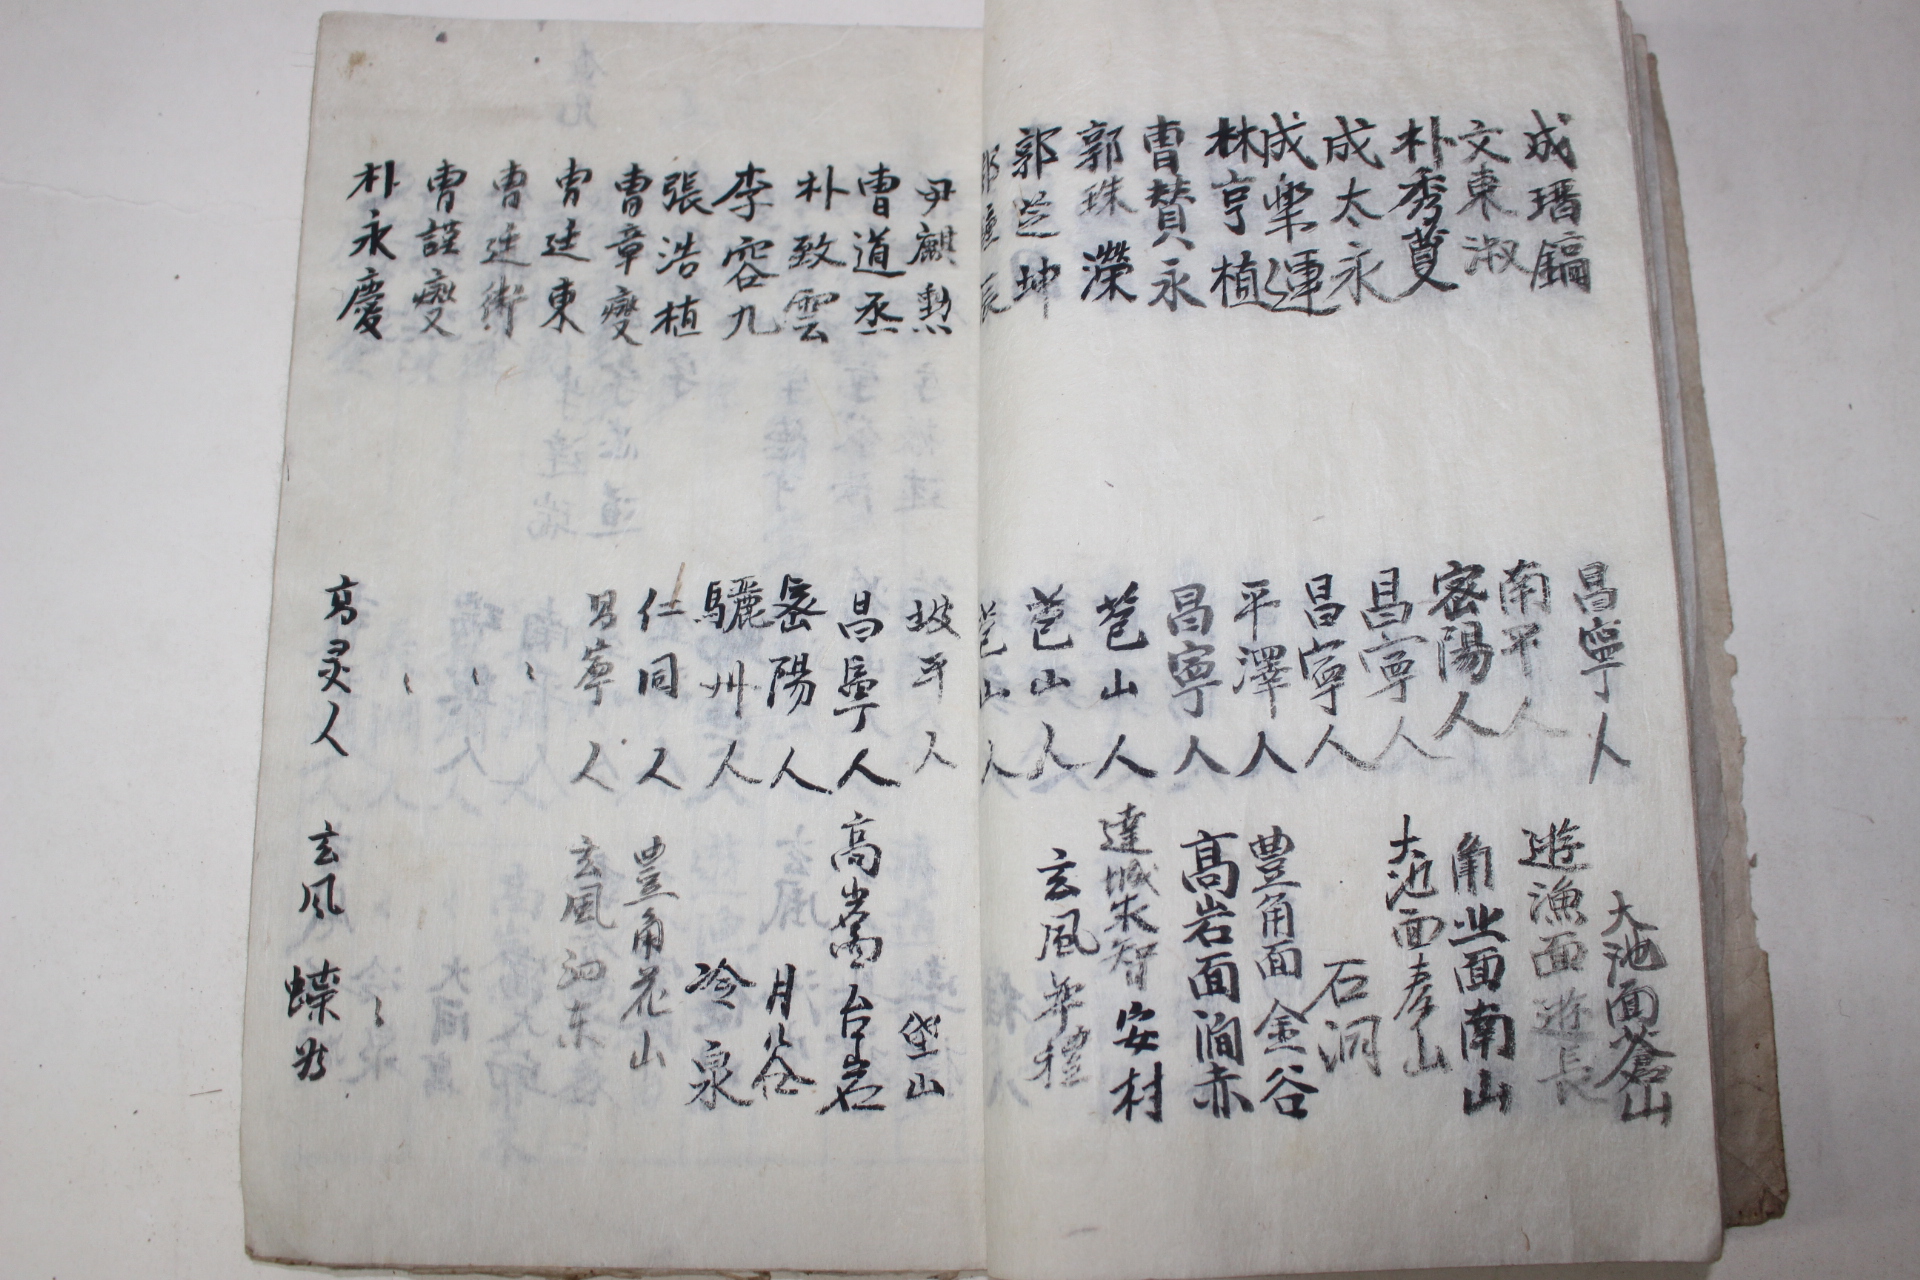 成瑨鎬 昌寧人 大池面蒼山
文東淑 南平人 遊漁面遊長
朴秀蔓 密陽人 角业面南山
成太永 昌寧人 大池面孝山
成樂運 昌寧人 石洞
林亨植 平澤人 豊角面金谷
曺賛永 昌寧人 高岩面澗赤
郭珠濚 苞山人 達城求智安村
郭芝坤 苞山人 玄風華禮
郭鍾辰 苞山人
尹麒勲 坡平人 垈山
曺道丞 昌寧人 高岩面台岩
朴致雲 密陽人 月谷
李容九 驪州人 冷泉
張浩植 仁同人 豊角花山
曺章燮 昌寧人 玄風泗东
曺廷東 〃
曺廷術 〃
曺謹燮 〃 〃
朴永慶 高灵人 玄風